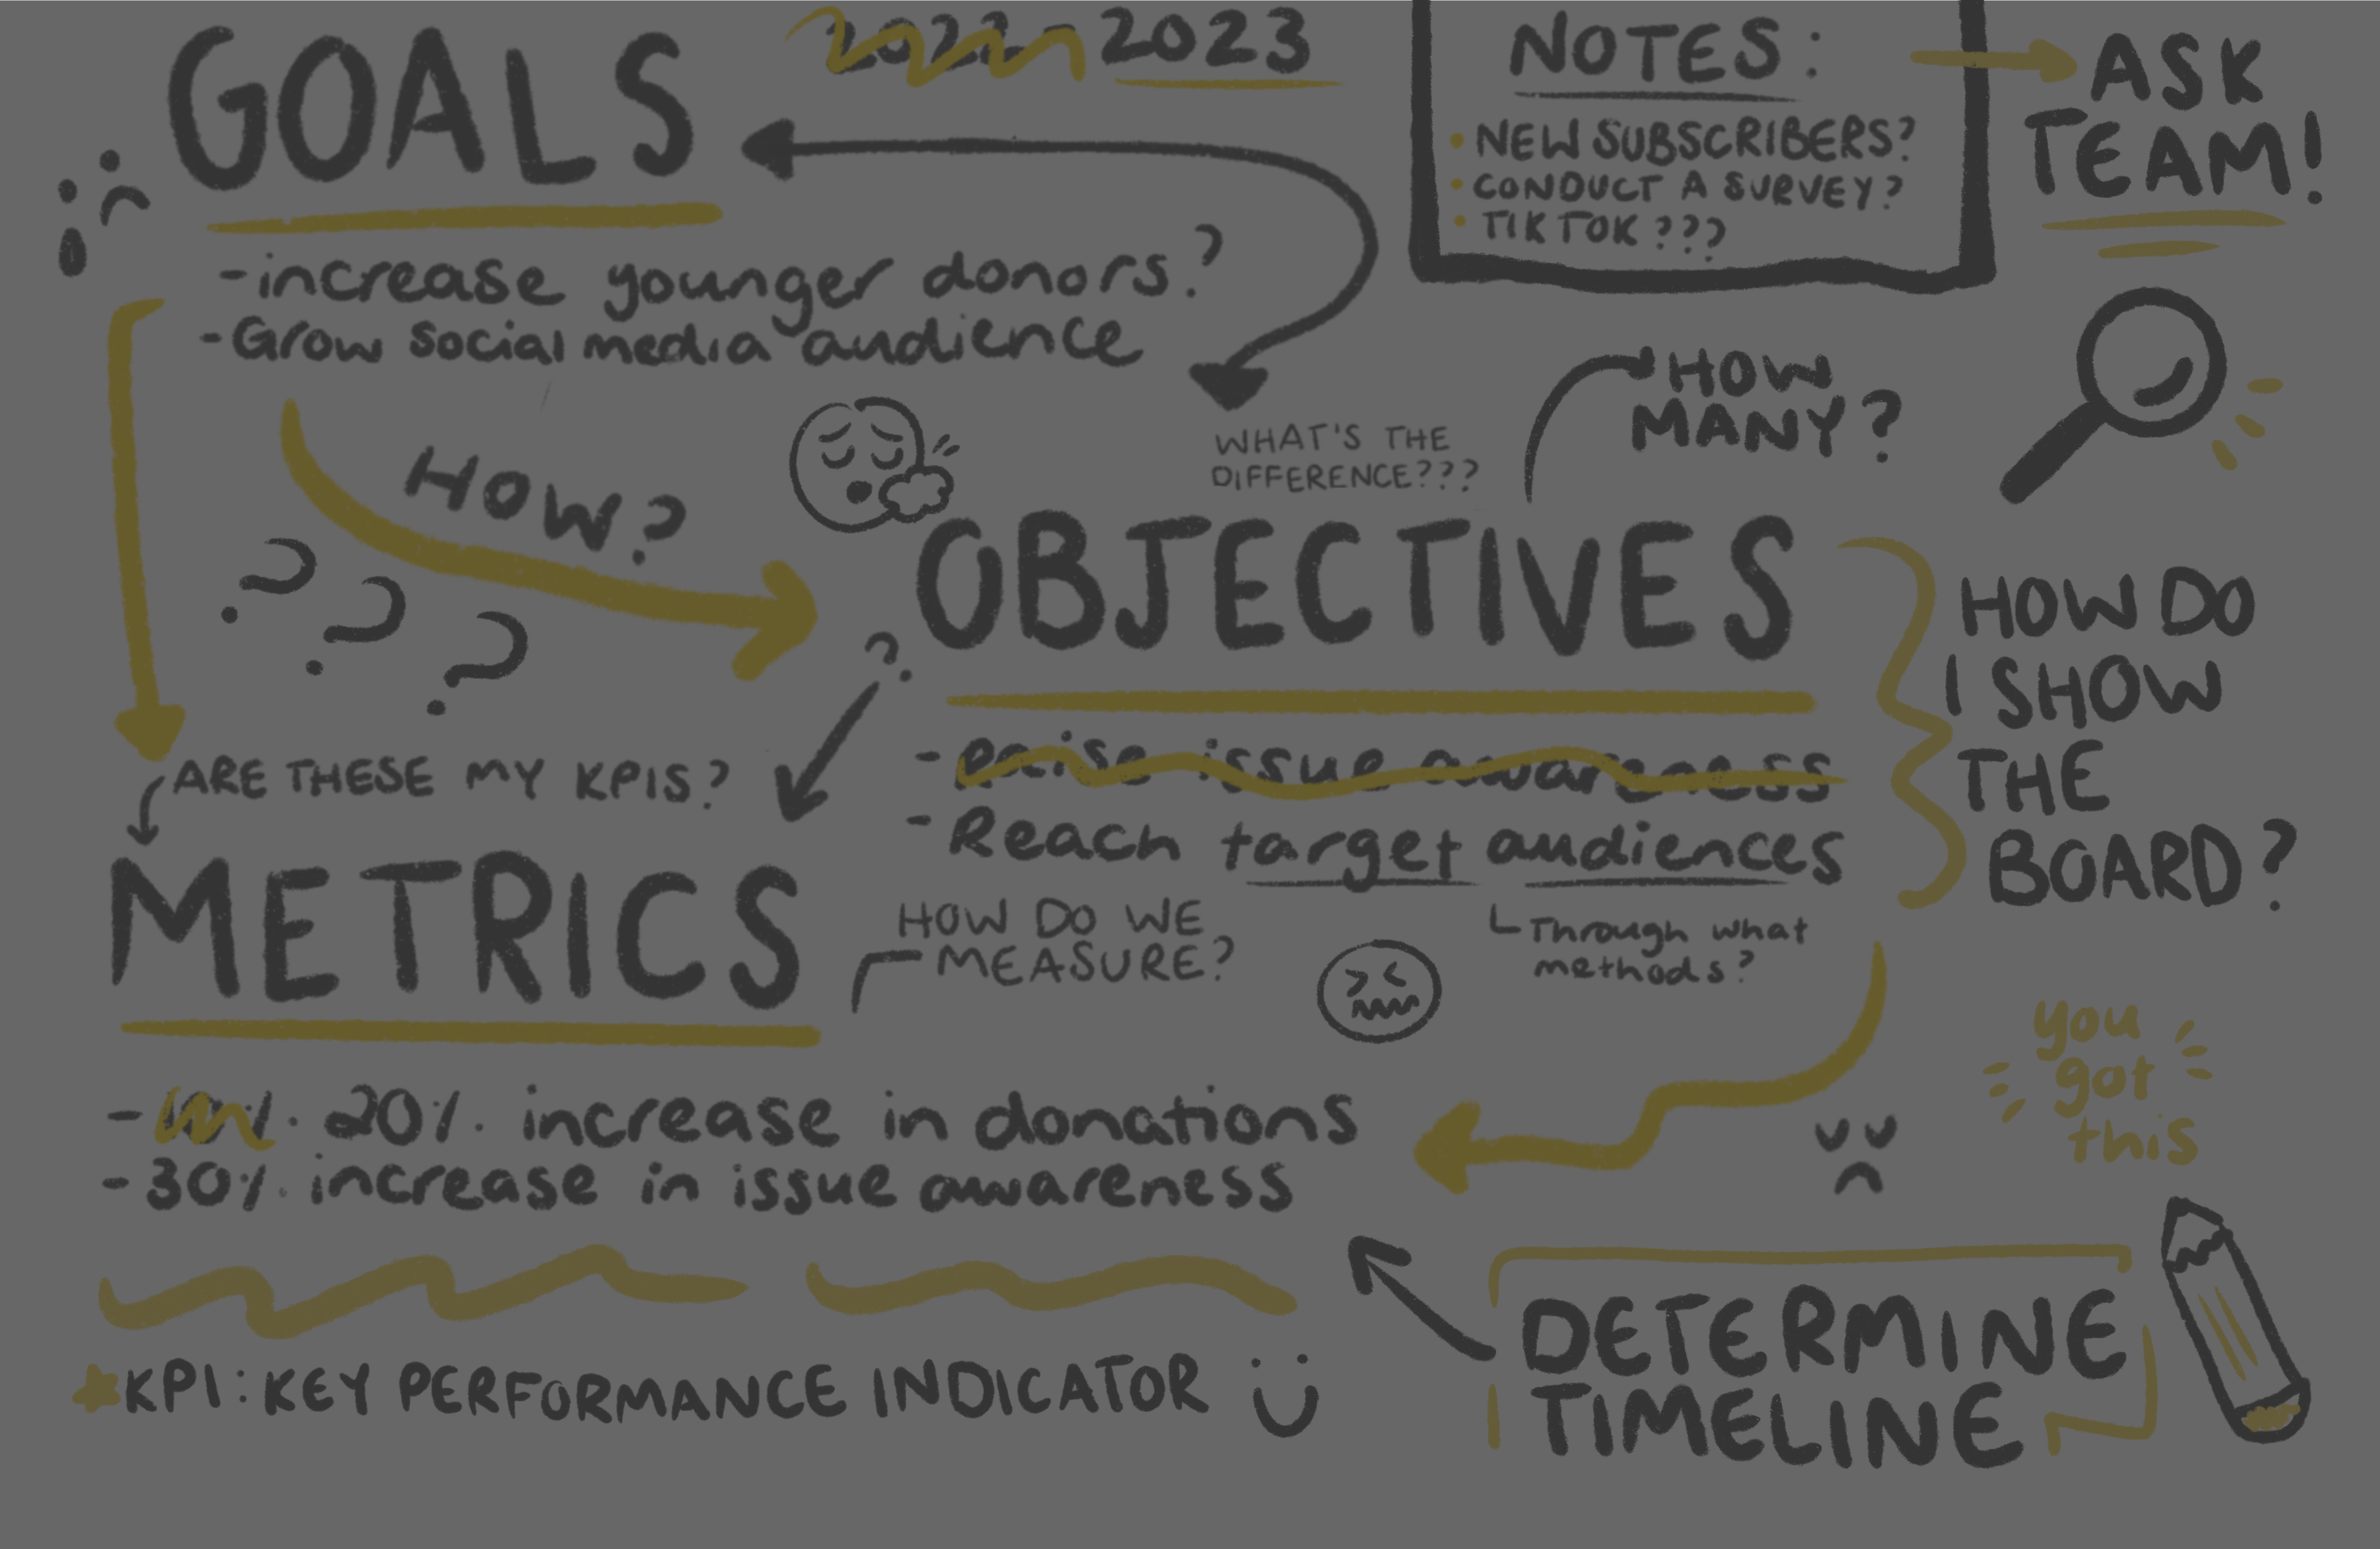 GOALS
2022 - 2023
NOTES:
• NEW SUBSCRIBERS?
• CONDUCT A SURVEY?
• TIKTOK???
ASK
TEAM!
- increase younger donors?
- Grow social media audience
HOW?
WHAT'S THE
DIFFERENCE???
HOW
MANY?
???
OBJECTIVES
?
- Raise issue awareness
- Reach target audiences
Through what
methods?
HOW DO
I SHOW
THE
BOARD?
ARE THESE MY KPIS?
METRICS
HOW DO WE
MEASURE?
- 20% increase in donations
- 30% increase in issue awareness
you
got
this
KPI: KEY PERFORMANCE INDICATOR
DETERMINE
TIMELINE